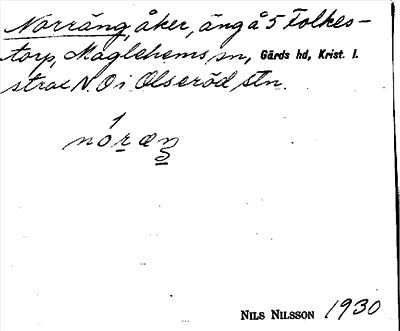 Norräng, åker, äng å 5 Folkes-
torp, Maglehems sn, Gärds hd, Krist. l.
strax NO i Olseröd stn.
1
noræŋ
NILS NILSSON 1930